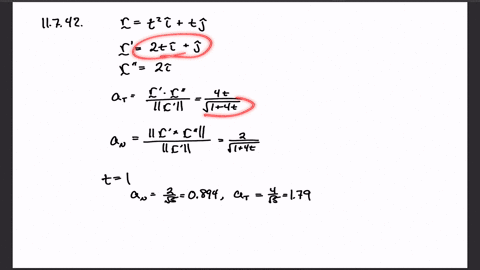 11.7.42. r = t² î + t ĵ
r' = 2t î + ĵ
r'' = 2 î
a_T = r' · r'' / ||r'|| = 4t / √(1+4t)
a_N = ||r' × r''|| / ||r'|| = 2 / √(1+4t)
t = 1
a_N = 2/√5 = 0.894, a_T = 4/√5 = 1.79